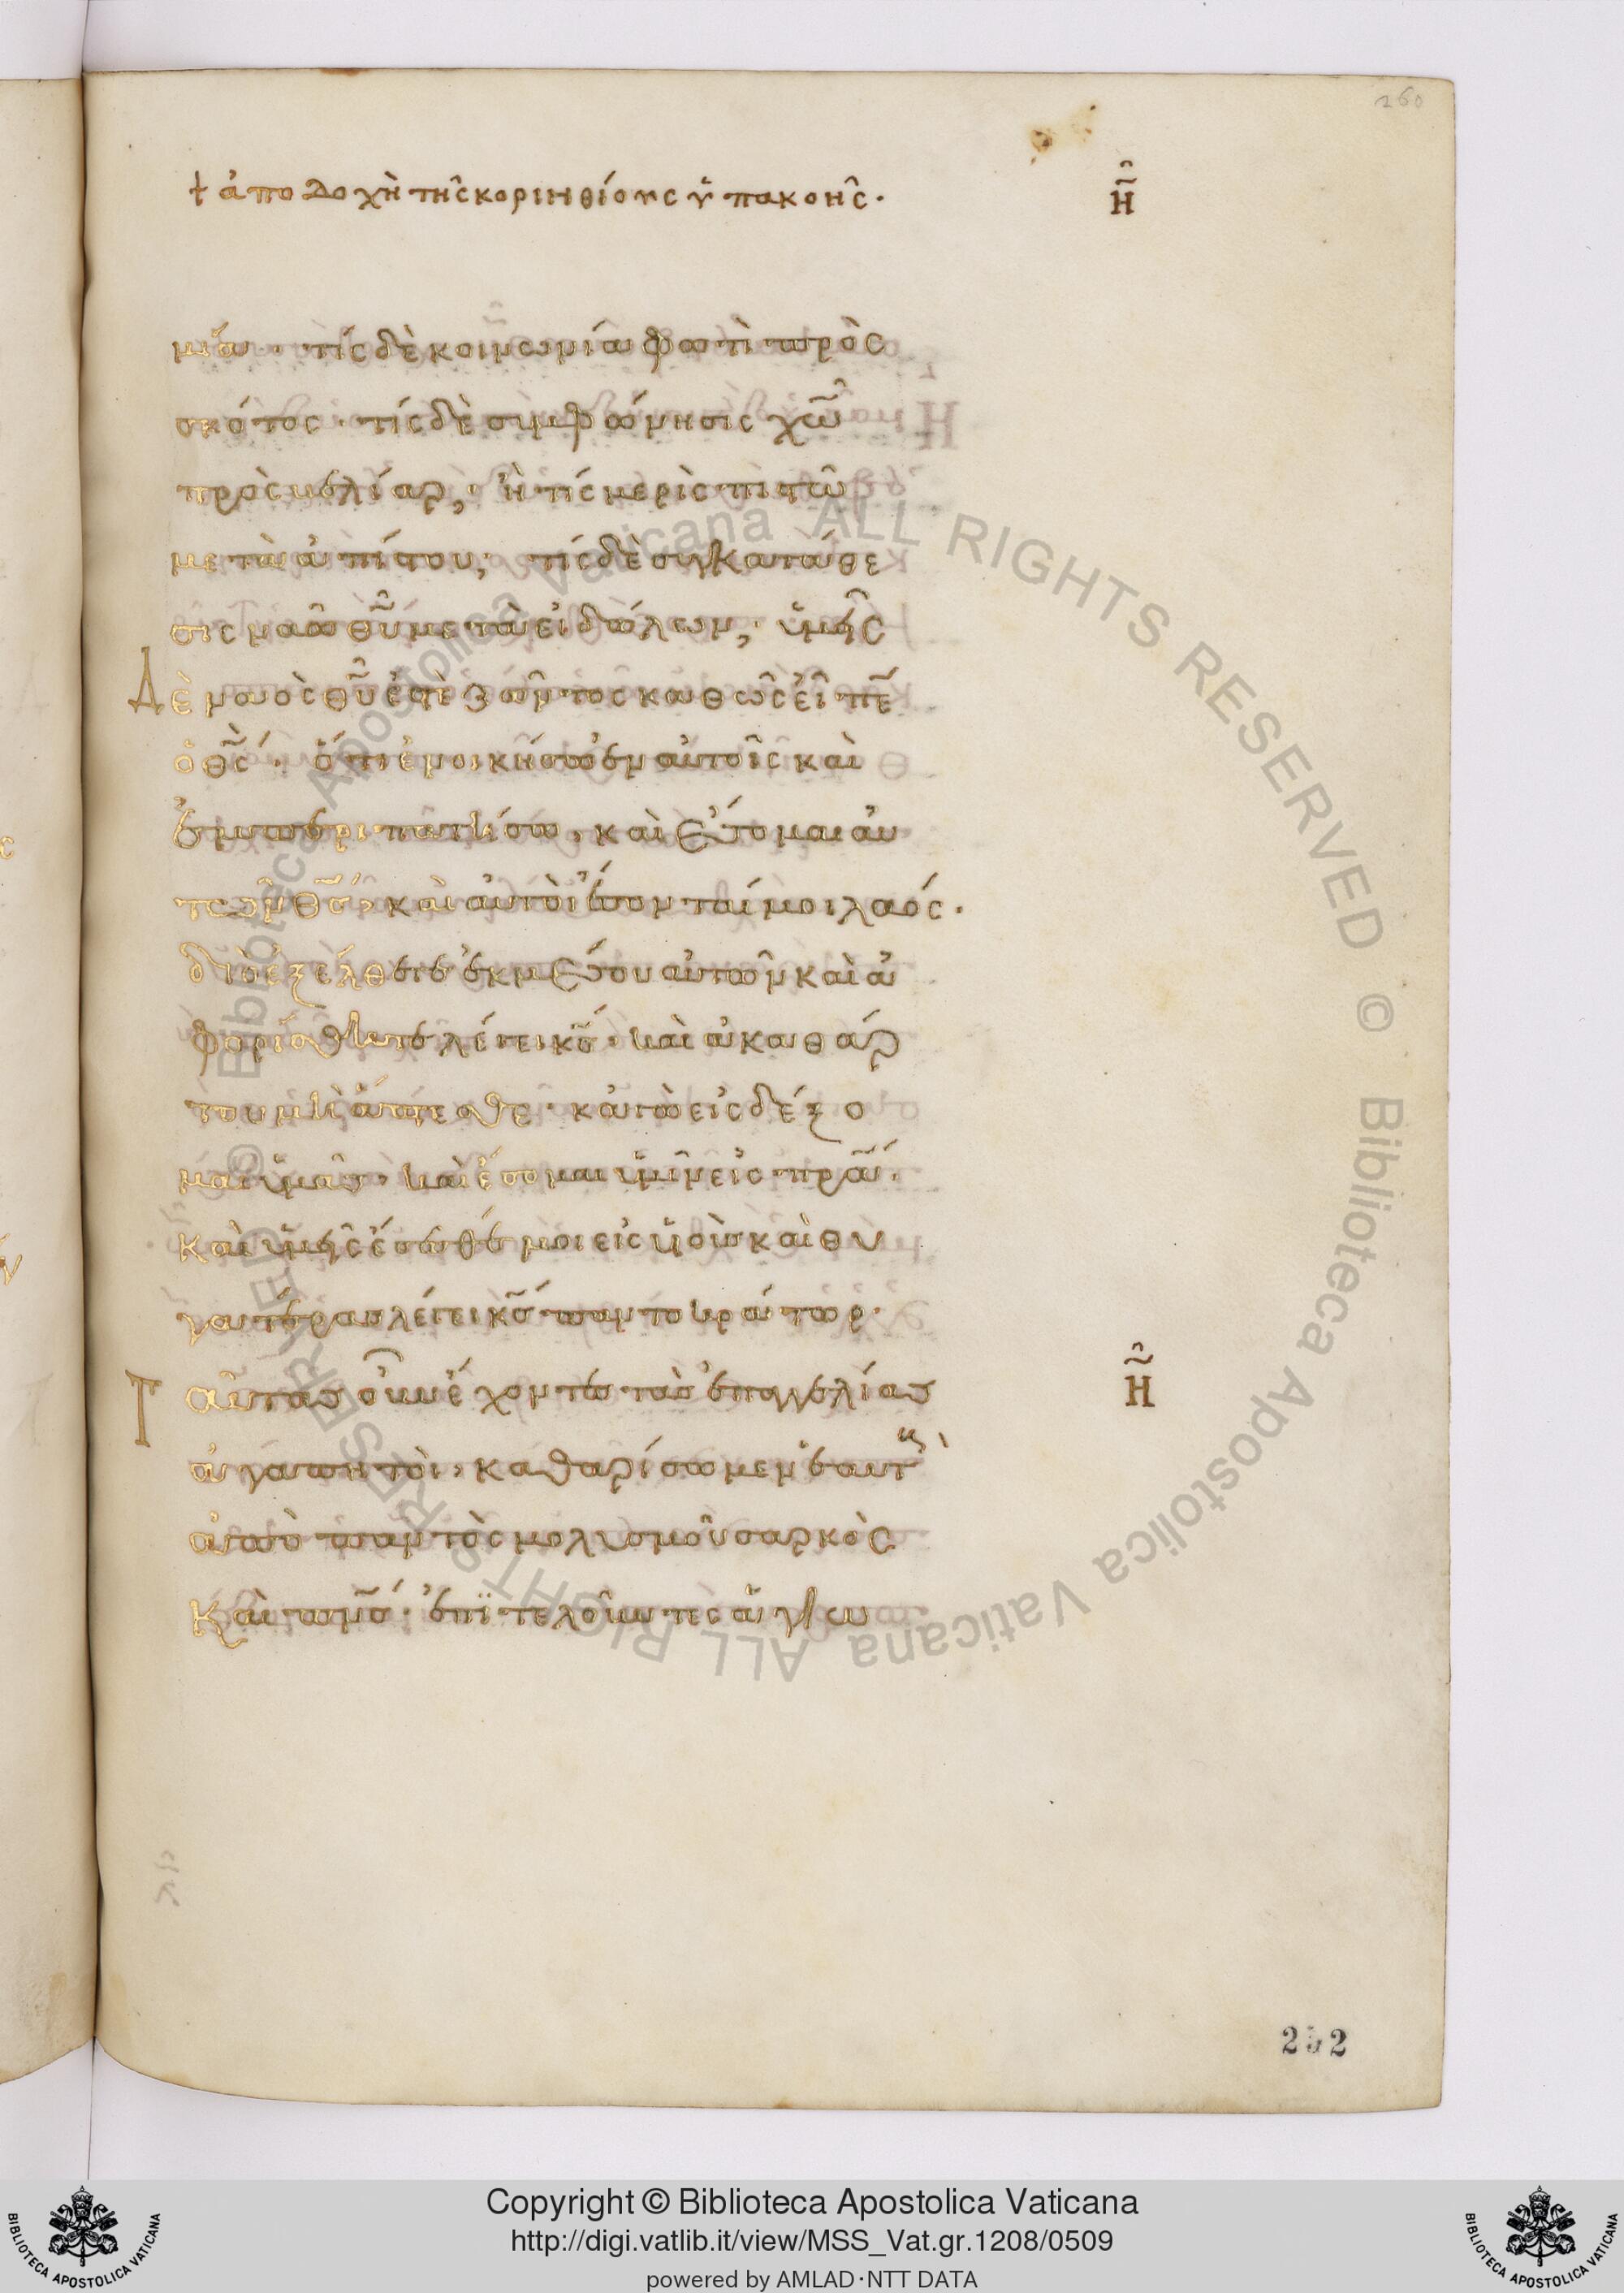 260
† ἀποδοχὴ τῆς κορινθίους ὑπακοῆς· Η̃
μία· τίς δὲ κοινωνία φωτὶ πρὸς
σκότος· τίς δὲ συμφώνησις χω̅
πρὸς βελίαρ, ἢ τίς μερὶς πιστῶ
μετὰ ἀπίστου; τίς δὲ συγκατάθε
σις ναῶ θυ̅ μετὰ εἰδώλων, ὑμεῖς
Δὲ ναὸς θυ̅ ἐστὲ ζῶντος καθὼς εἶπε̅
ὁ θς̅· ὅτι ἐνοικήσω ἐν αὐτοῖς καὶ
ἐμπεριπατήσω, καὶ ἔσομαι αὐ
τῶν θς̅, καὶ αὐτοὶ ἔσονταί μοι λαός.
διὸ ἐξέλθετε ἐκ μέσου αὐτῶν καὶ ἀ
φορίσθητε λέγει κς̅· καὶ ἀκαθάρ
του μὴ ἅπτεσθε· κἀγὼ εἰσδέξο
μαι ὑμᾶς· καὶ ἔσομαι ὑμῖν εἰς πρα̅·
καὶ ὑμεῖς ἔσεσθέ μοι εἰς υἱοὺς καὶ θυ
γατέρας λέγει κς̅ παντοκράτωρ·
Ταύτας οὖν ἔχοντες τὰς ἐπαγγελίας Η̃
ἀγαπητοὶ, καθαρίσωμεν ἑαυτ
ἀπὸ παντὸς μολυσμοῦ σαρκὸς
Καὶ πνς̅· ἐπϊτελοῦντες ἁγιω
252
Copyright © Biblioteca Apostolica Vaticana
http://digi.vatlib.it/view/MSS_Vat.gr.1208/0509
powered by AMLAD·NTT DATA
BIBLIOTECA APOSTOLICA VATICANA
BIBLIOTECA APOSTOLICA VATICANA
© Biblioteca Apostolica Vaticana ALL RIGHTS RESERVED
© Biblioteca Apostolica Vaticana ALL RIGHTS RESERVED